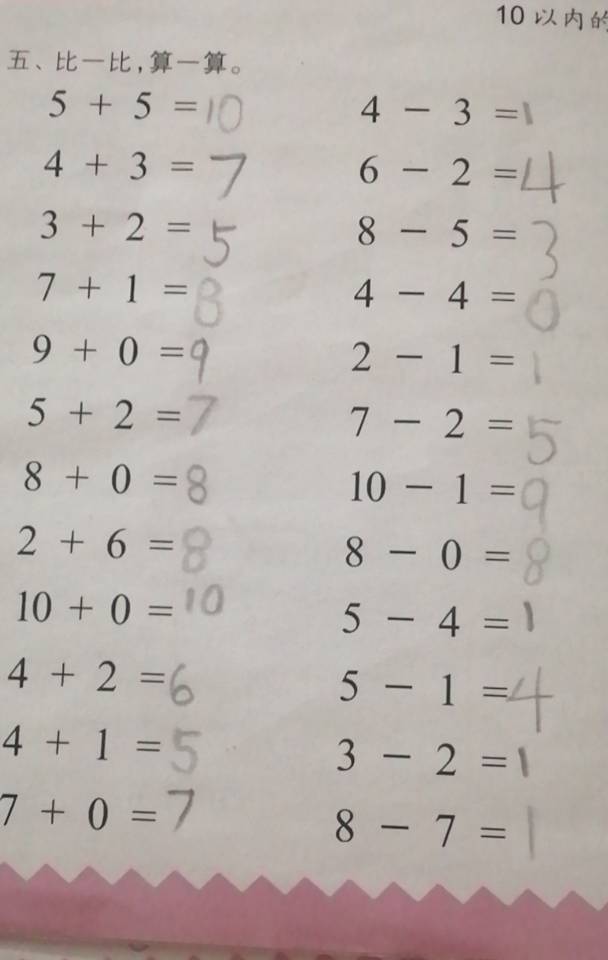 10 以内的
五、比一比，算一算。
5 + 5 = 10 4 - 3 = 1
4 + 3 = 7 6 - 2 = 4
3 + 2 = 5 8 - 5 = 3
7 + 1 = 8 4 - 4 = 0
9 + 0 = 9 2 - 1 = 1
5 + 2 = 7 7 - 2 = 5
8 + 0 = 8 10 - 1 = 9
2 + 6 = 8 8 - 0 = 8
10 + 0 = 10 5 - 4 = 1
4 + 2 = 6 5 - 1 = 4
4 + 1 = 5 3 - 2 = 1
7 + 0 = 7 8 - 7 = 1